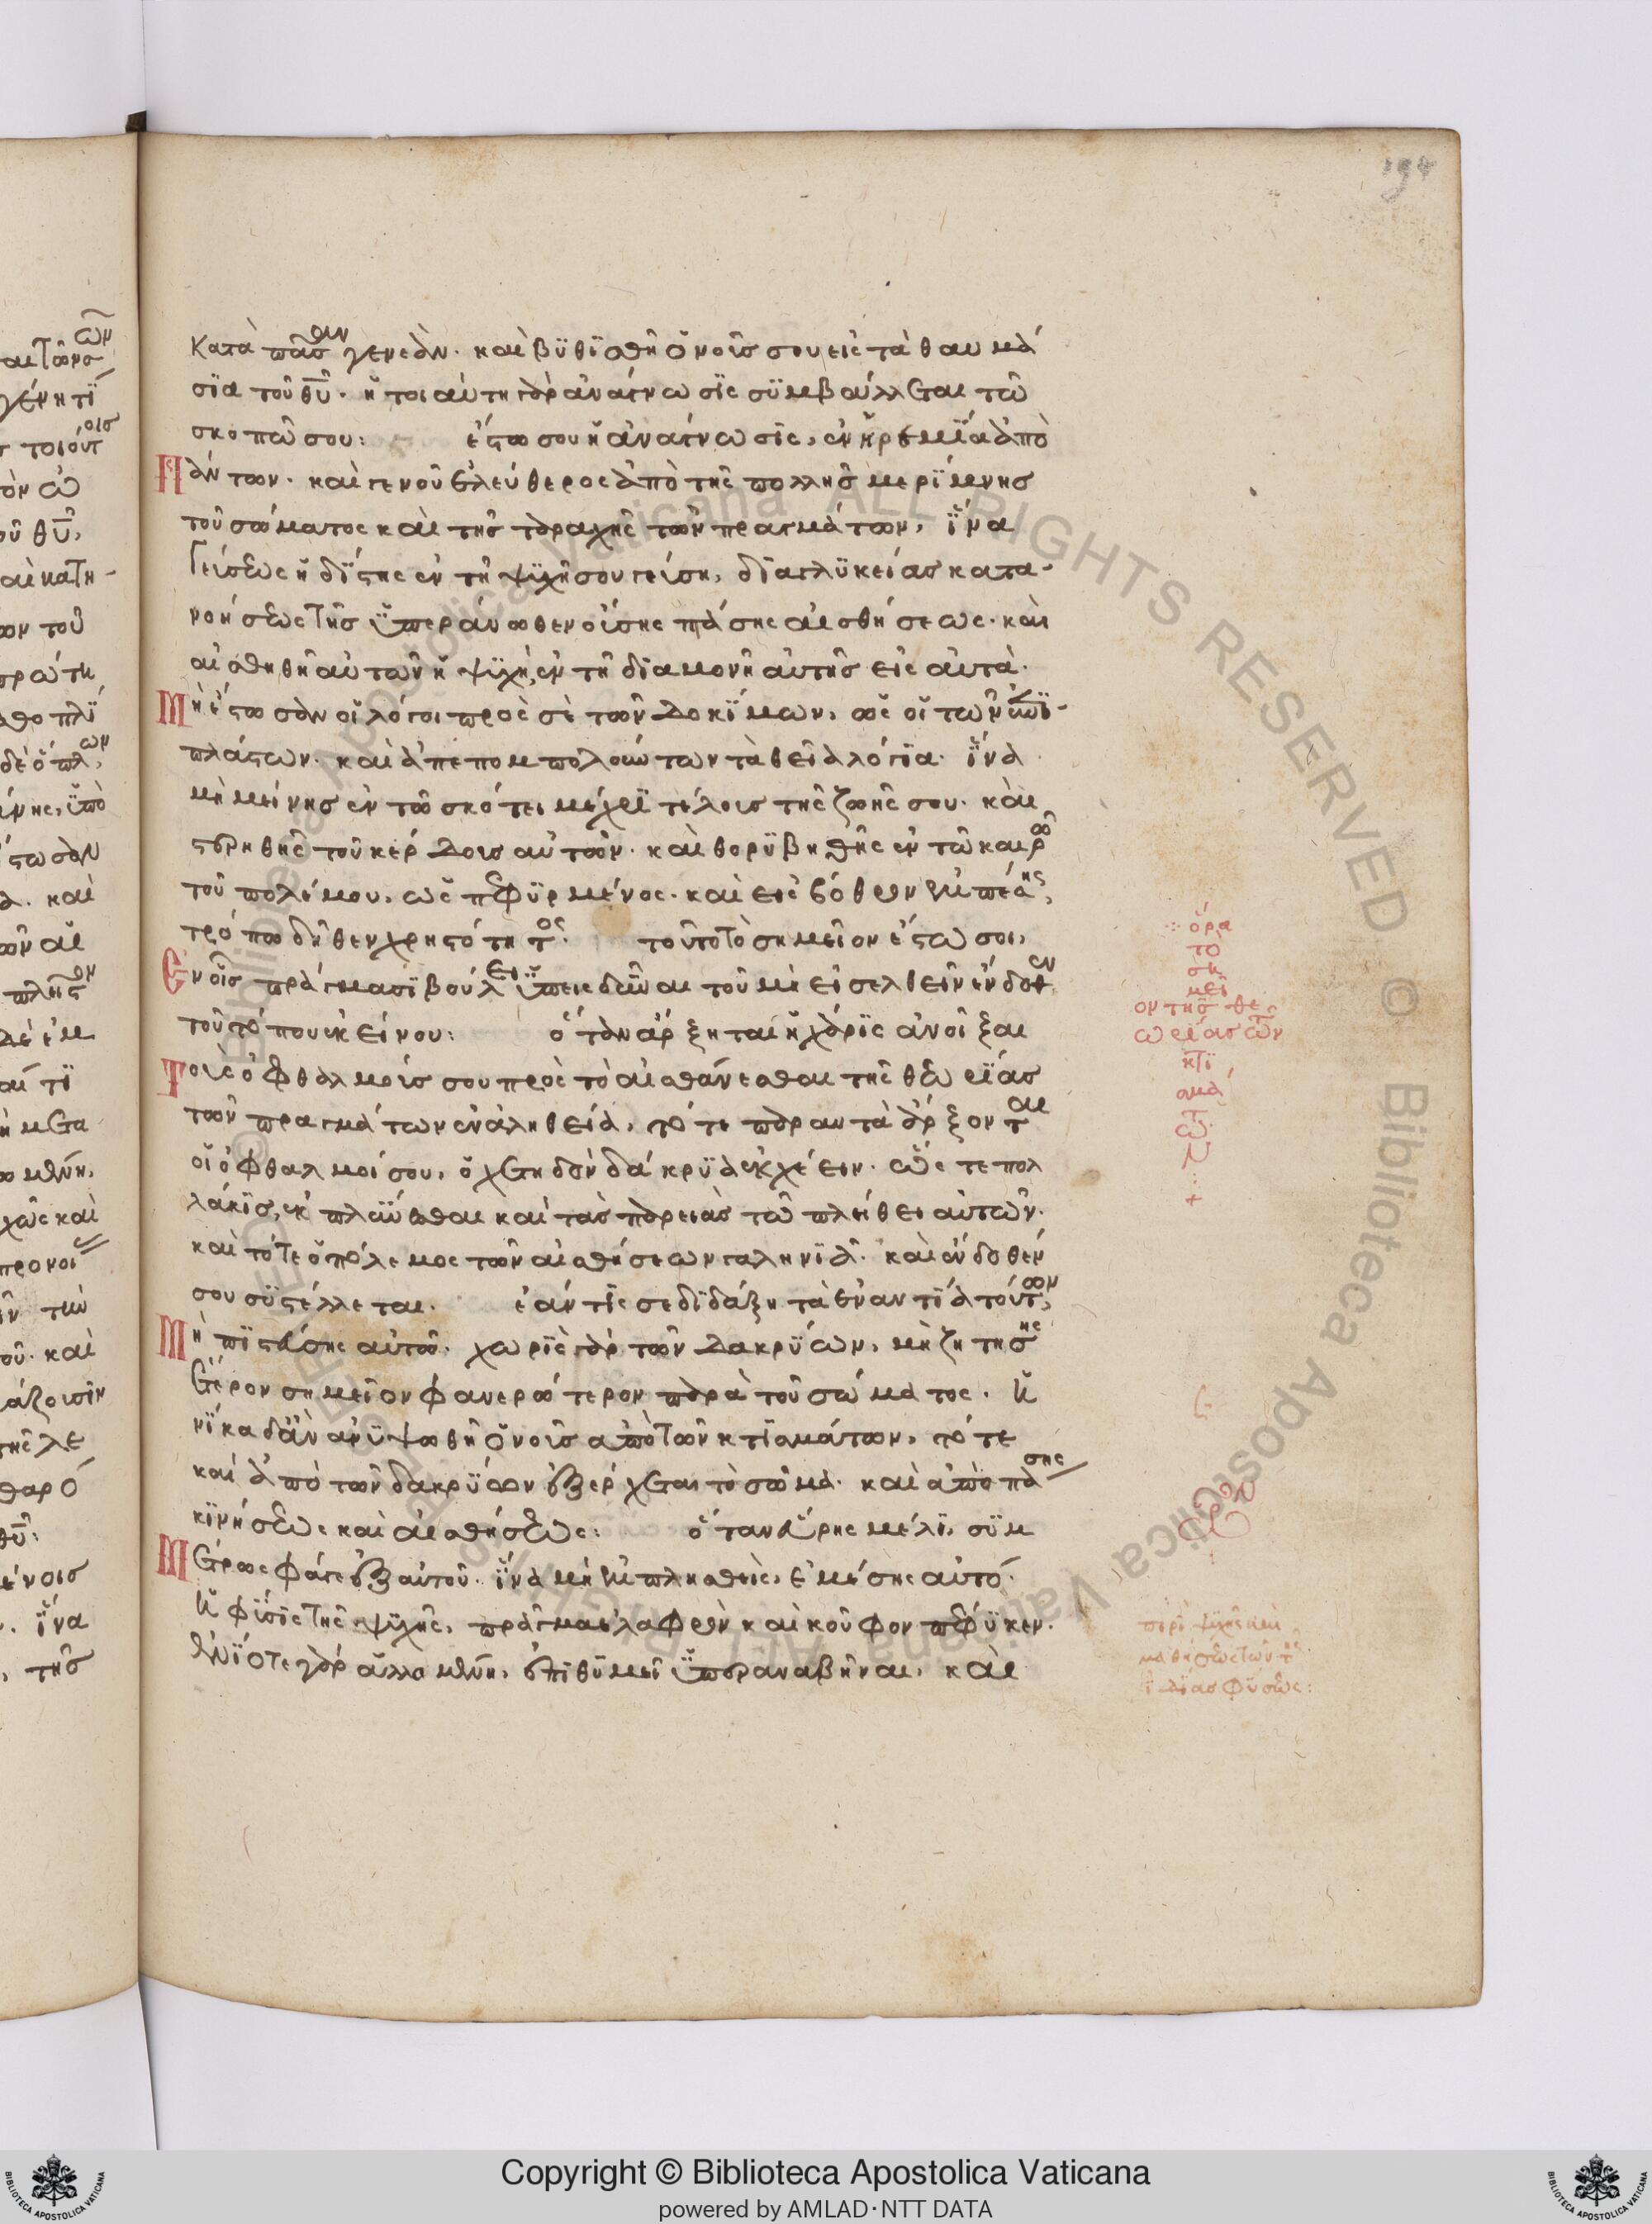 194
κατὰ πᾶσαν γενεὰν· καὶ βυθισθῆ ὁ νοῦς σου εἰς τὰ θαυμά
σια τοῦ θυ̅· ἥτοι αὕτη γὰρ ἀνάγνωσις συμβάλλεται τῶ
σκοπῶ σου: ἔστω σου ἡ ἀνάγνωσις, ἐν ἠρεμία ἀπὸ
Πάντων· καὶ γενοῦ ἐλεύθερος ἀπὸ τῆς πολλῆς μερίμνης
τοῦ σώματος καὶ τῆς ταραχῆς τῶν πραγμάτων, ἵνα
γεύσεως ἡδίστης ἐν τῆ ψυχῆ σου γεύση, διὰ γλυκείας κατα-
νοήσεως τῆς ὑπεράνωθεν οὔσης πάσης αἰσθήσεως· καὶ
αἰσθηθῆ αὐτῶν ἡ ψυχὴ, ἐν τῆ διαμονῆ αὐτῆς εἰς αὐτά·
Μὴ ἔστωσαν οἱ λόγοι πρὸς σὲ τῶν δοκίμων, ὡς οἱ τῶν ἐπι-
πλάστων· καὶ ἀπεμπολούντων τὰ θεῖα λόγια· ἵνα
μὴ μείνης ἐν τῶ σκότει μέχρι τέλους τῆς ζωῆς σου· καὶ
στερηθῆς τοῦ κέρδους αὐτῶν· καὶ θορυβηθῆς ἐν τῶ καιρῶ
τοῦ πολέμου, ὡς πεφυρμένος· καὶ εἰς βόθρον ἐμπέσης,
τρόπω δῆθεν χρηστότητος· τοῦτο τὸ σημεῖον ἔστω σοι,
Ἐν οἷς πράγμασι βούλει ὑπεισδῦναι τοῦ μὴ εἰσελθεῖν ἔνδοθεν
τοῦ τόπου ἐκείνου: ὅταν ἄρξηται ἡ χάρις ἀνοῖξαι
Τοὺς ὀφθαλμούς σου πρὸς τὸ αἰσθάνεσθαι τῆς θεωρίας
τῶν πραγμάτων ἐν ἀληθεία, τότε παραυτὰ ἄρξονται
οἱ ὀφθαλμοί σου, ὀχετηδὸν δάκρυα ἐκχέειν· ὥστε πολ
λάκις, ἐκπλύνεσθαι καὶ τὰς παρειὰς τῶ πλήθει αὐτῶν·
καὶ τότε ὁ πόλεμος τῶν αἰσθήσεων γαληνιᾶ· καὶ ἔνδοθέν
σου συστέλλεται. ἐάν τίς σε διδάξη τὰ ἐναντία τούτων,
Μὴ πιστεύσης αὐτῶ· χωρὶς γὰρ τῶν δακρύων, μὴ ζητήσης
ἕτερον σημεῖον φανερώτερον παρὰ τοῦ σώματος. ἡ
νίκα δ' ἂν ἀνυψωθῆ ὁ νοῦς ἀπὸ τῶν κτισμάτων, τότε
καὶ ἀπὸ τῶν δακρύων ἐξέρχεται τὸ σῶμα· καὶ ἀπὸ πάσης
κινήσεως καὶ αἰσθήσεως: ὅταν εὕρης μέλι, συμ
Μέτρως φάγε ἐξ αὐτοῦ· ἵνα μὴ ἐμπλησθεὶς, ἐμέσης αὐτό·
ἡ φύσις τῆς ψυχῆς, πρᾶγμα ἐλαφρὸν καὶ κοῦφον πέφυκεν·
ἐνίοτε γὰρ ἁλλομένη, ἐπιθυμεῖ ὑπεραναβῆναι, καὶ
ὅρα
τὸ
ση
μεῖ
ον τῆς θε
ωρίας τῶν
κτι
σμά
τω
ν
+
περὶ ψυχῆς καὶ
μαθήσεως τῶν τῆς
ἰδίας φύσεως:
Copyright © Biblioteca Apostolica Vaticana
powered by AMLAD·NTT DATA